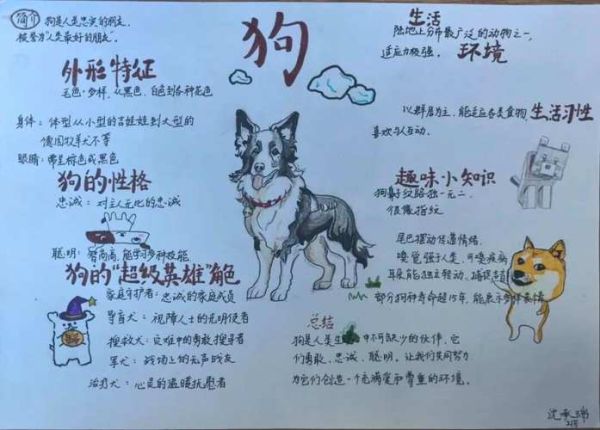 简介
狗是人是忠实的朋友.
被誉为"人类最好的朋友"
狗
生活
环境
陆地上分布最广泛的动物之一,
适应力极强.
外形特征
毛色:多样,从黑色、白色到各种花色
身体:体型从小型的吉娃娃到大型的
德国牧羊犬不等
眼睛:带呈棕色或黑色
生活习性
以群居为主,能适应各类食物,
喜欢与人互动.
狗的性格
忠诚:对主人无比的忠诚
聪明:智商高,能学习多种技能
趣味小知识
狗鼻子纹路独一无二
很像指纹
尾巴摆动传递情绪.
嗅觉强于人类,可嗅疾病
耳朵能独立转动、捕捉声音
部分狗种寿命超15年,能表示多样表情
狗的"超级英雄"角色
家庭守护者:忠诚的家庭成员
导盲犬:视障人士的光明使者
搜救犬:灾难中的勇敢搜寻者
军犬:战场上的无声战友
治疗犬:心灵的温暖抚慰者
总结
狗是人是生 中不可缺少的伙伴,它
们勇敢、忠诚、聪明.让我们共同努力
为它们创造一个充满爱和尊重的环境.